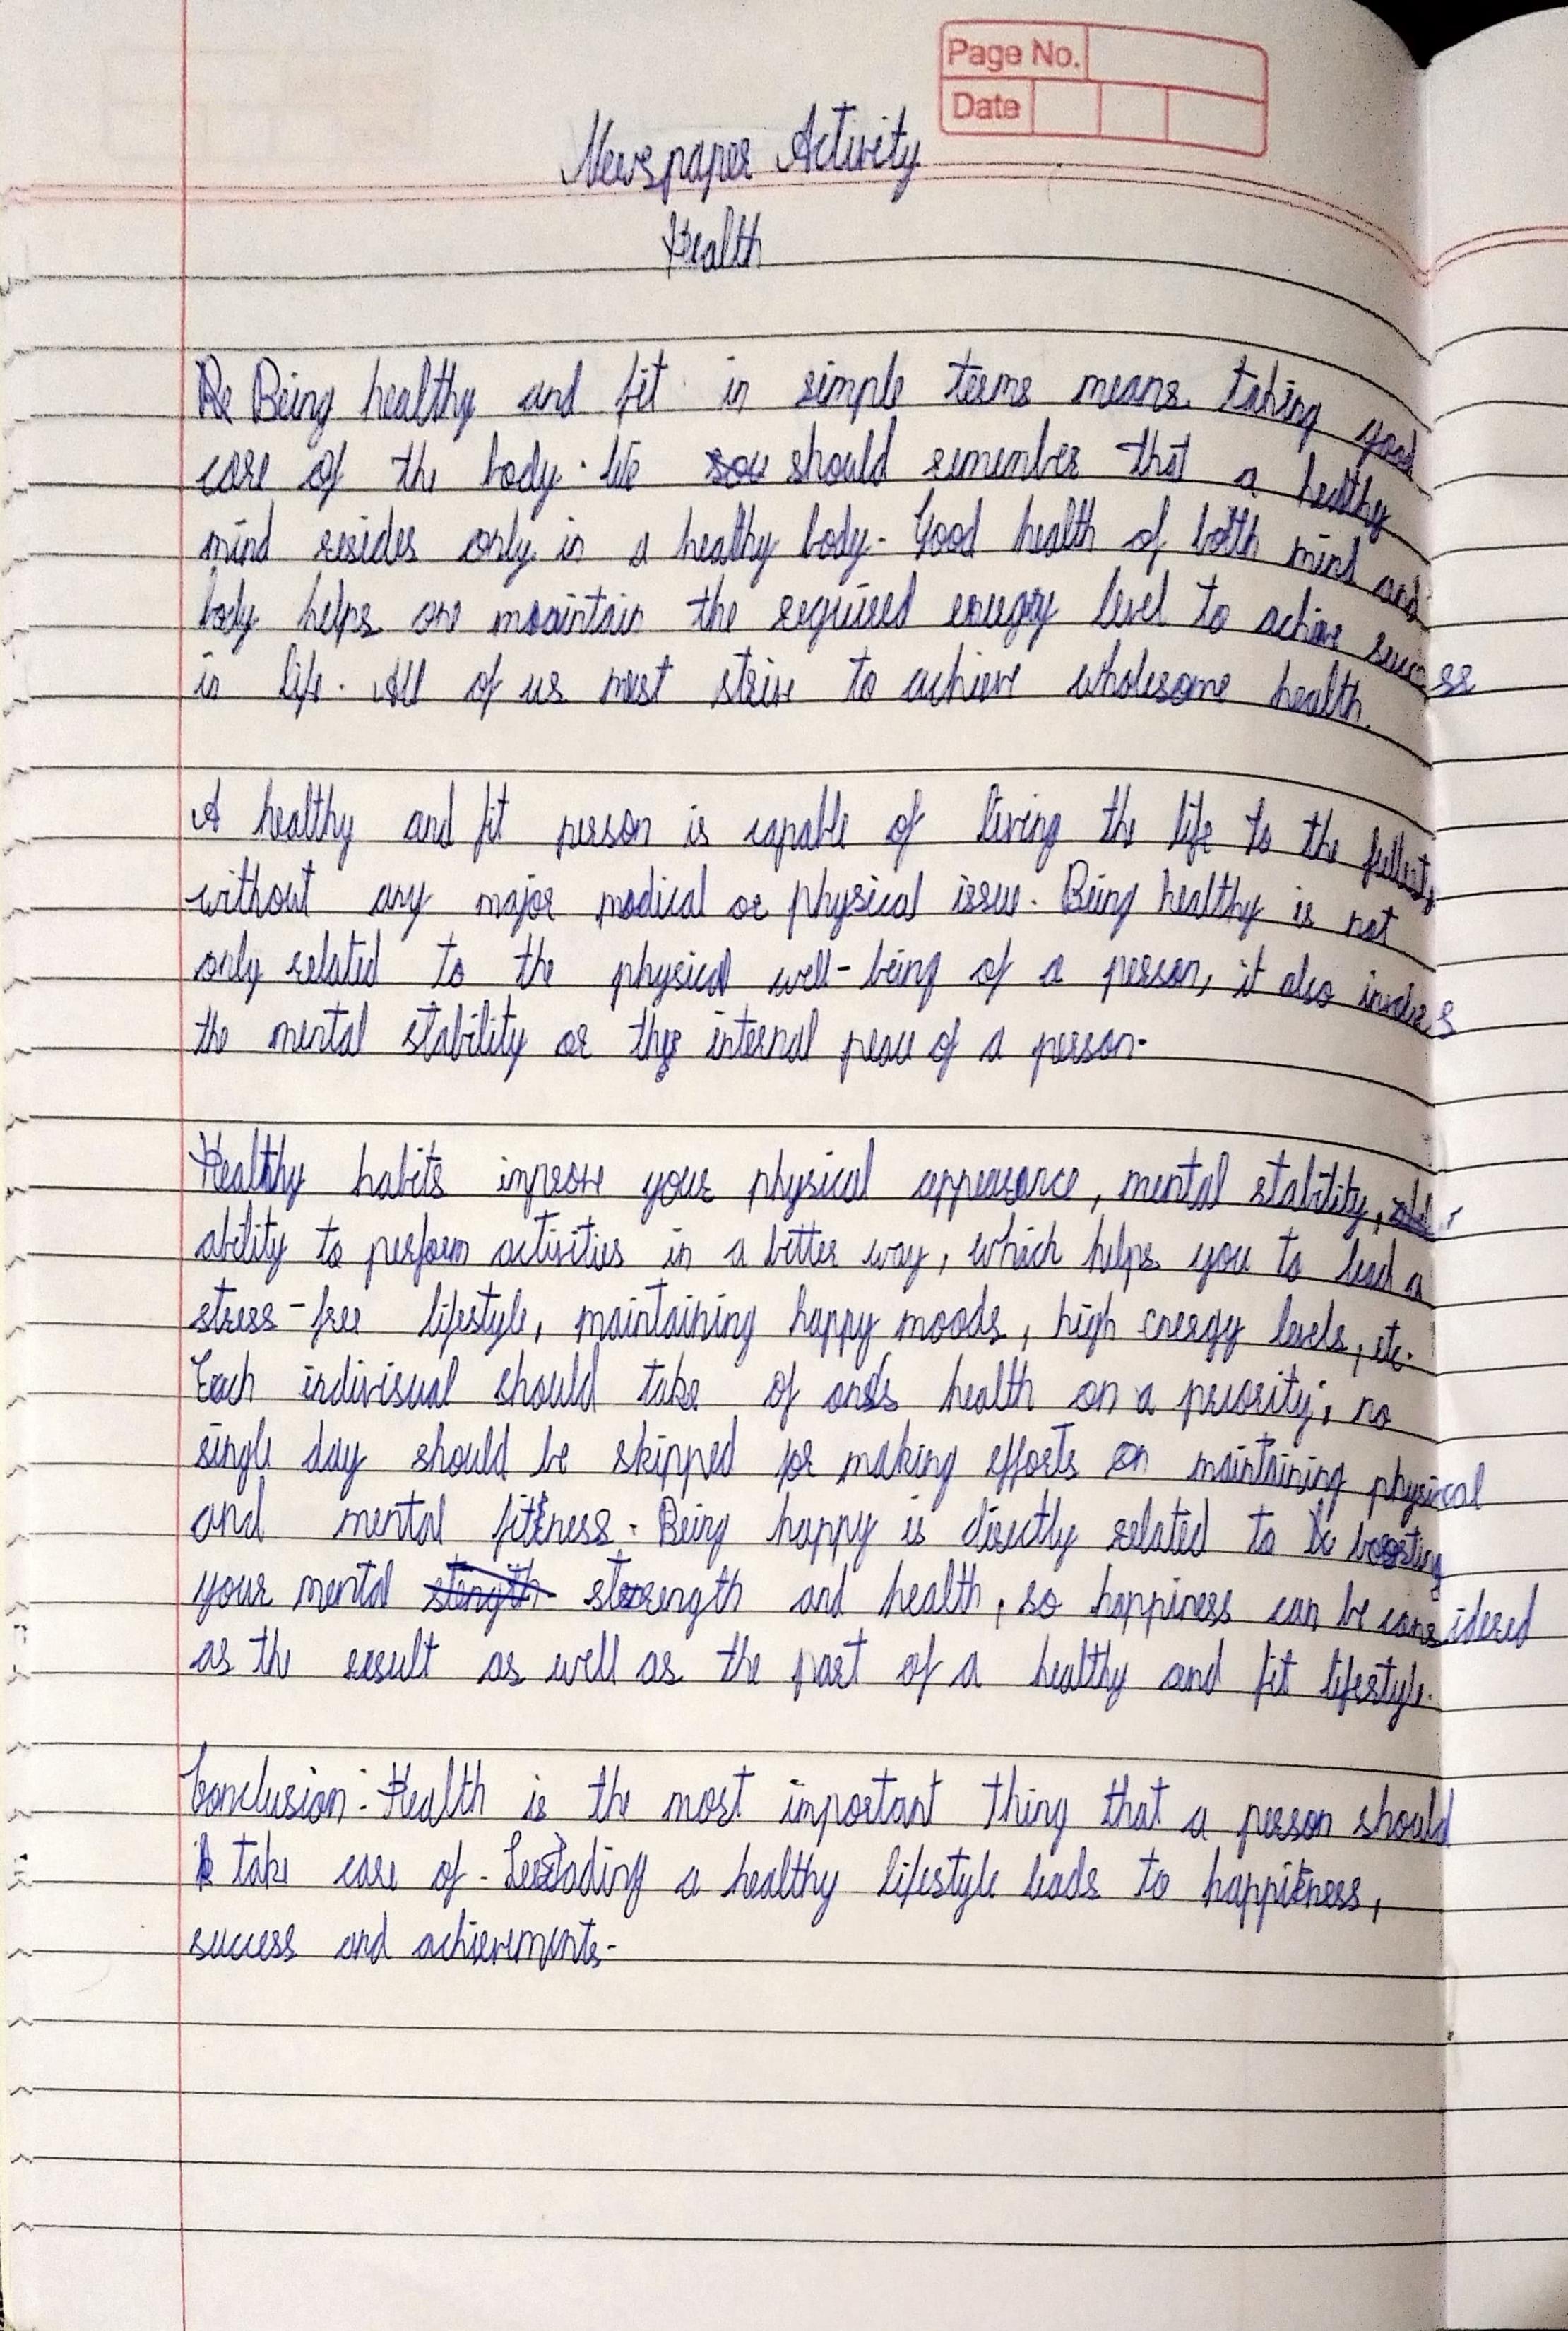 Page No.
Date
Newspaper Activity
Health
Being healthy and fit in simple terms means taking good
care of the body. We should remember that a healthy
mind resides only in a healthy body. Good health of both mind and
body helps one maintain the required energy level to achive success
in life. All of us must strive to achieve wholesome health.
A healthy and fit person is capable of living the life to the fullest,
without any major medical or physical issue. Being healthy is not
only related to the physical well-being of a person, it also involves
the mental stability or the internal peace of a person.
Healthy habits improve your physical appearance, mental stability,
ability to perform activities in a better way, which helps you to lead a
stress-free lifestyle, maintaining happy moods, high energy levels, etc.
Each indivisual should take of one's health on a priority; no
single day should be skipped for making efforts on maintaining physical
and mental fitness. Being happy is directly related to boosting
your mental stength strength and health, so happiness can be considered
as the result as well as the part of a healthy and fit lifestyle.
Conclusion:- Health is the most important thing that a person should
take care of. Leading a healthy lifestyle leads to happiness,
success and achievements.